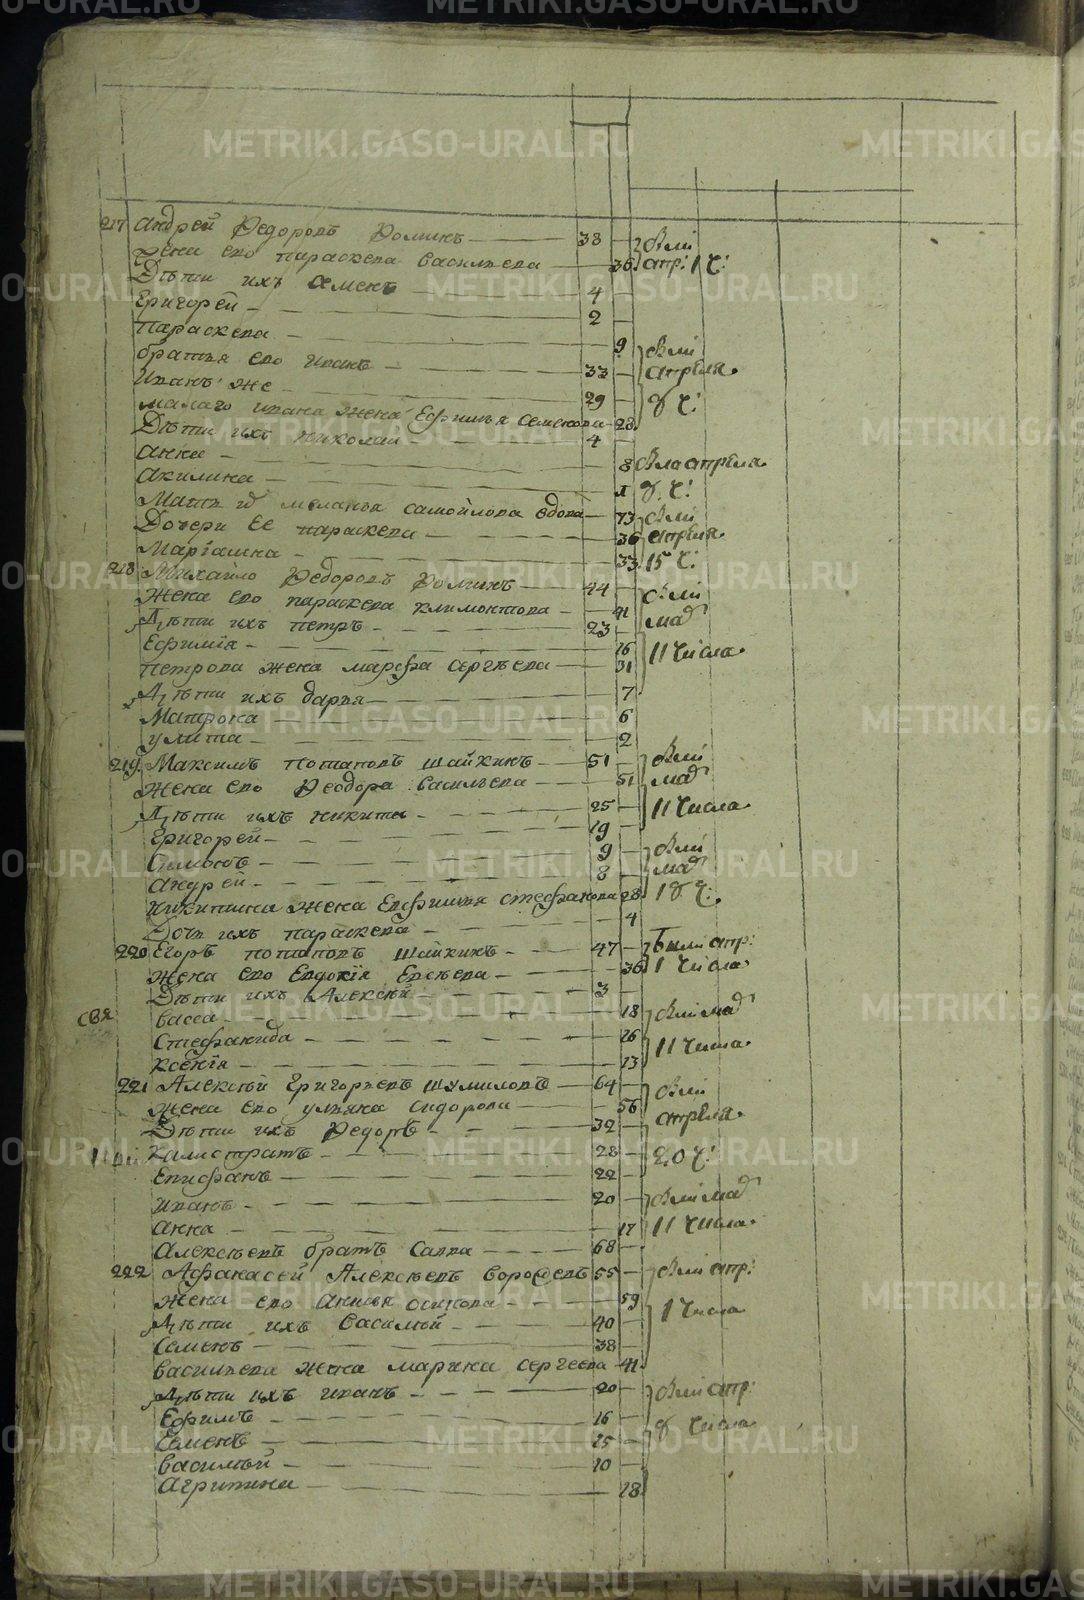 217 Андрей Ѳедоровъ Ѳоминъ 38 были
Жена ево параскева васильева 36 апр: 1 Ч:
Дѣти ихъ Семенъ 4
Григорей 2
Параскева 9 были
братья ево иванъ 33 апрѣля
Иванъ же 29 8 Ч:
малаго ивана жена Ефимья семенова 28
Дѣти ихъ николай 4
анна 8 были апрѣля
акилина 1 8 Ч:
Мать меланья самойлова вдова 73 были
Дочери ее параскева 36 апрѣля
Марiамна 33 15 Ч:
218 Михайло Ѳедоровъ Ѳоминъ 44 были
жена ево параскева климонтова 41 маѧ
Дѣти ихъ петръ 23
Ефимiя 16 11 числа
петрова жена марфа сергѣева 31
Дѣти ихъ дарья 7
Матрона 6
улита 2
219. Максимъ потаповъ шайкинъ 51 были
жена ево Ѳеодора васильева 51 маѧ
Дѣти ихъ никита 25 11 числа
Григорей 19
Симонъ 9 были
андрей 8 маѧ
никитина жена Евфимья стефанова 28 18 Ч:
Дочь ихъ параскева 4
220 Егоръ потаповъ шайкинъ 47 были апр:
жена ево Евдокiя 36 1 числа
Дѣти ихъ Алексѣй 3
васса 18 были маѧ
Стефанида 16 11 числа
ксенiя 13
221 Алексѣй григорьевъ шумиловъ 64 были
жена ево ульяна сидорова 56 апрѣля
Дѣти ихъ Ѳедоръ 32
Калистратъ 28 20 Ч:
Епифанъ 22
иванъ 20 были маѧ
анна 17 11 числа
Алексѣевъ братъ савва 68
222 Афанасей Алексѣевъ 55 были апр:
жена ево анисья осипова 59 1 числа
Дѣти ихъ василѣй 40
Семенъ 38
васильева жена марина сергеева 41
Дѣти ихъ иванъ 20 были апр:
Ефимъ 16 8 числа
Семенъ 15
василѣй 10
агрипина 18
METRIKI.GASO-URAL.RU